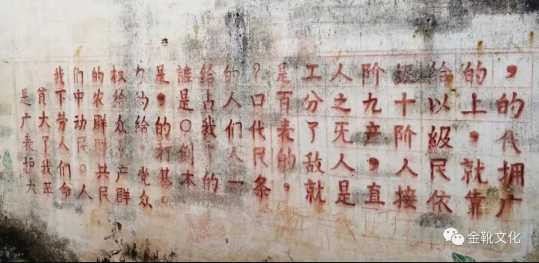 我们的权力是谁给的?是工人阶级给的,
贫下中农给的,占人口百分之九十以上的
广大劳动群众给的。我们代表了无产阶级,代
表了人民群众,打倒了人民的敌人,人民就拥
护我们。共产党基本的一条,就是直接依靠广
大革命人民群众。
金靴文化